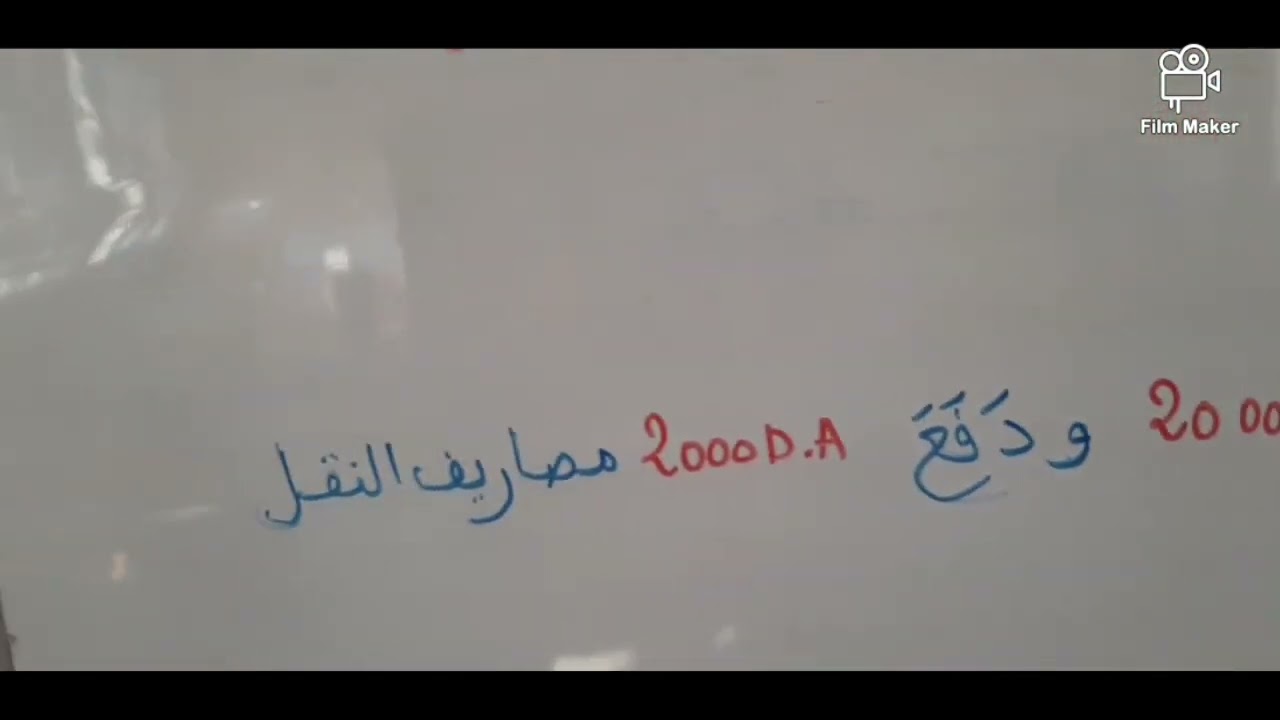 Film Maker
20 00 و دَفَعَ 2000 D.A مصاريف النقل